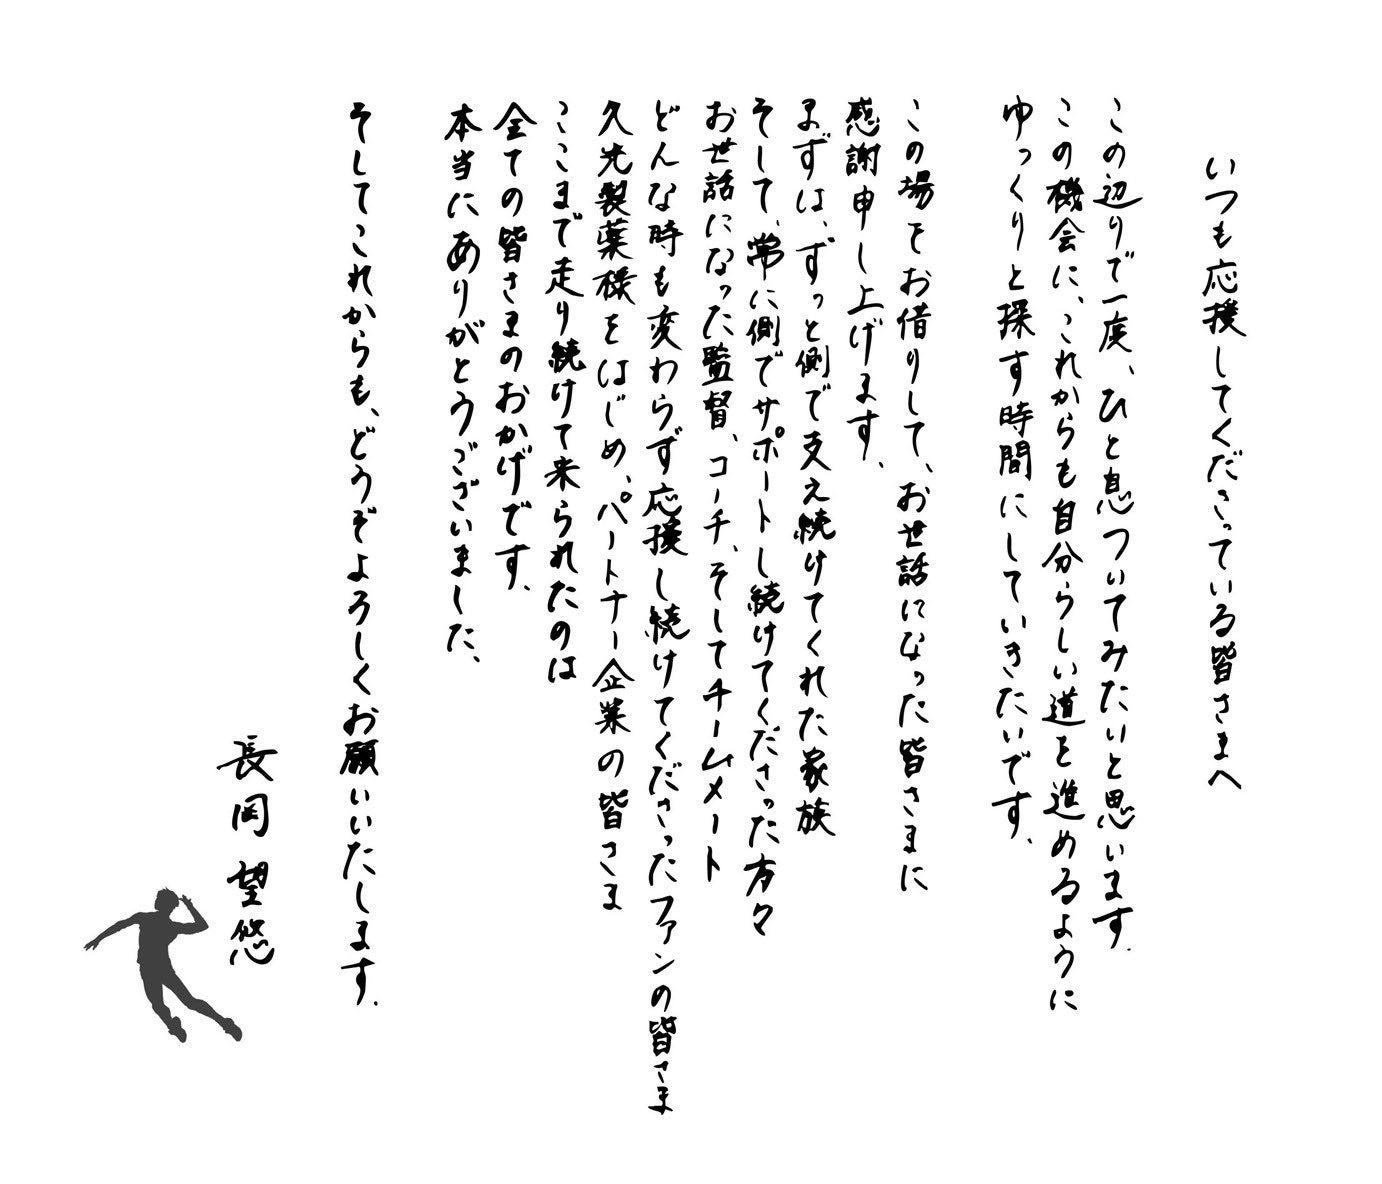 いつも応援してくださっている皆さまへ
この辺りで一度、ひと息ついてみたいと思います.
この機会に、これからも自分らしい道を進めるように
ゆっくりと探す時間にしていきたいです.
この場をお借りして、お世話になった皆さまに
感謝申し上げます.
まずは、ずっと側で支え続けてくれた家族
そして、常に側でサポートし続けてくださった方々
お世話になった監督、コーチ、そしてチームメート
どんな時も変わらず応援し続けてくださったファンの皆さま
久光製薬様をはじめ、パートナー企業の皆さま
ここまで走り続けて来られたのは
全ての皆さまのおかげです.
本当にありがとうございました、
そしてこれからも、どうぞよろしくお願いいたします.
長岡望悠